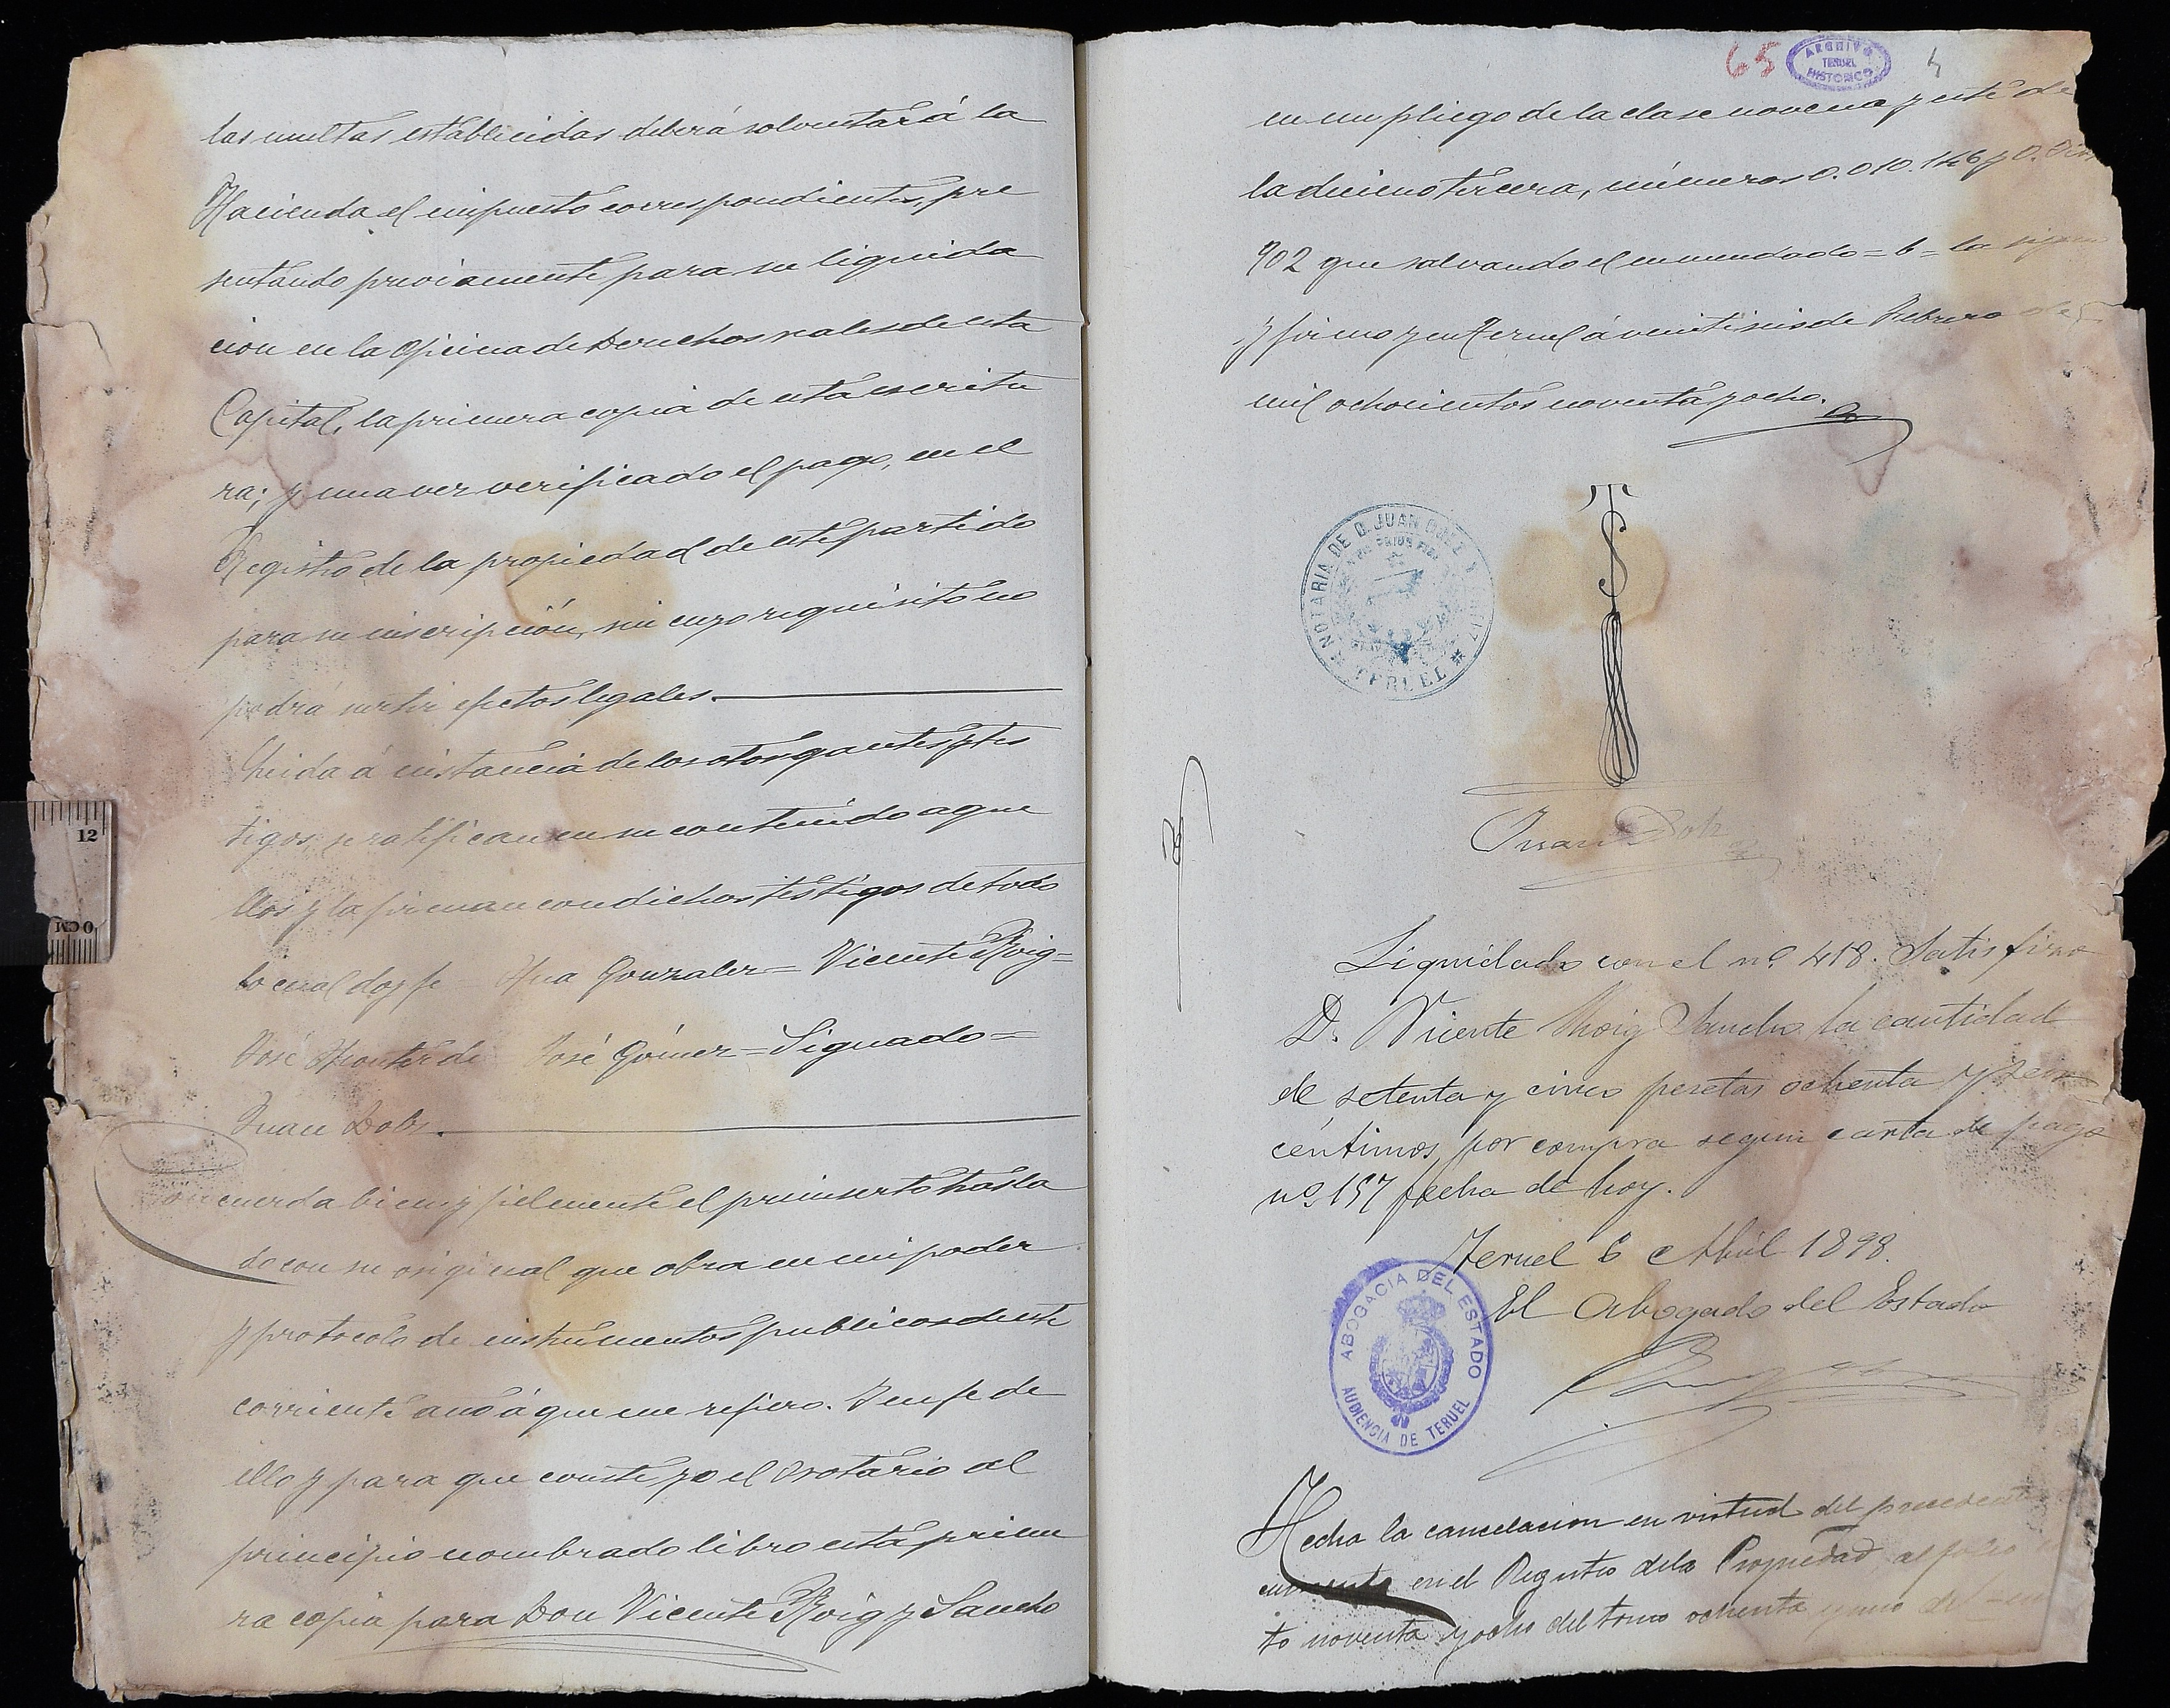 las multas establecidas deberá solventar á la
Hacienda el impuesto correspondiente, pre
sentando previamente para su liquida
cion en la oficina de Derechos reales de esta
Capital, la primera copia de esta escritu
ra; y una vez verificado el pago, en el
Registro de la propiedad de este partido
para su inscripción, sin cuyo requisito no
podrá surtir efectos legales.
Leida á instancia de los otorgantes y tes
tigos, se ratifican en su contenido aque
llos y la firman con dichos testigos de todo
lo cual doy fe Ana Gonzalez = Vicente Roig =
José Monterde José Gómez = Signado =
Juan Dolz.
Concuerda bien y fielmente el preinserto trasla
do con su original que obra en mi poder
y protocolo de instrumentos publicos de este
corriente año á que me refiero. En fe de
ello y para que conste yo el Notario al
principio nombrado libro esta prime
ra copia para Don Vicente Roig y Sancho
65 ARCHIVO HISTORICO TERUEL 4
en un pliego de la clase novena y este de
la decimotercera, números 0.010.146 y 0.
902 que salvando el enmendado = b = la signo
y firmo y en Teruel á veintiseis de Febrero de
mil ochocientos noventa y ocho.
NOTARIA DE D. JUAN DOLZ
TERUEL
Juan Dolz
Liquidado con el nº 418. Satisfizo
D. Vicente Roig Sancho la cantidad
de setenta y cinco pesetas ochenta y seis
céntimos, por compra segun carta de pago
nº 157 fecha de hoy.
Teruel 6 Abril 1898.
El Abogado del Estado
ABOGACIA DEL ESTADO
AUDIENCIA DE TERUEL
Hecha la cancelacion en virtud del precedente
en el Registro dela Propiedad al folio
to noventa y ocho del tomo ochenta y uno del